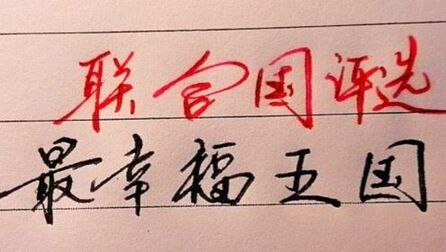 联合国评选
最幸福五国